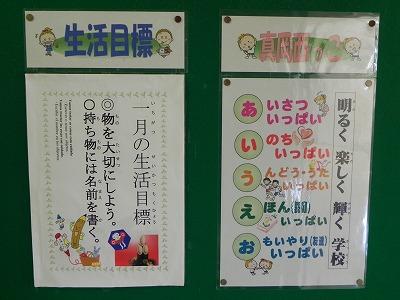 生活目標
一月の生活目標
◎物を大切にしよう。
○持ち物には名前を書く。
明るく 楽しく 輝く 学校
あいさついっぱい
いのちいっぱい
うんどう・うたいっぱい
えほん(読書)いっぱい
おもいやり(友達)いっぱい